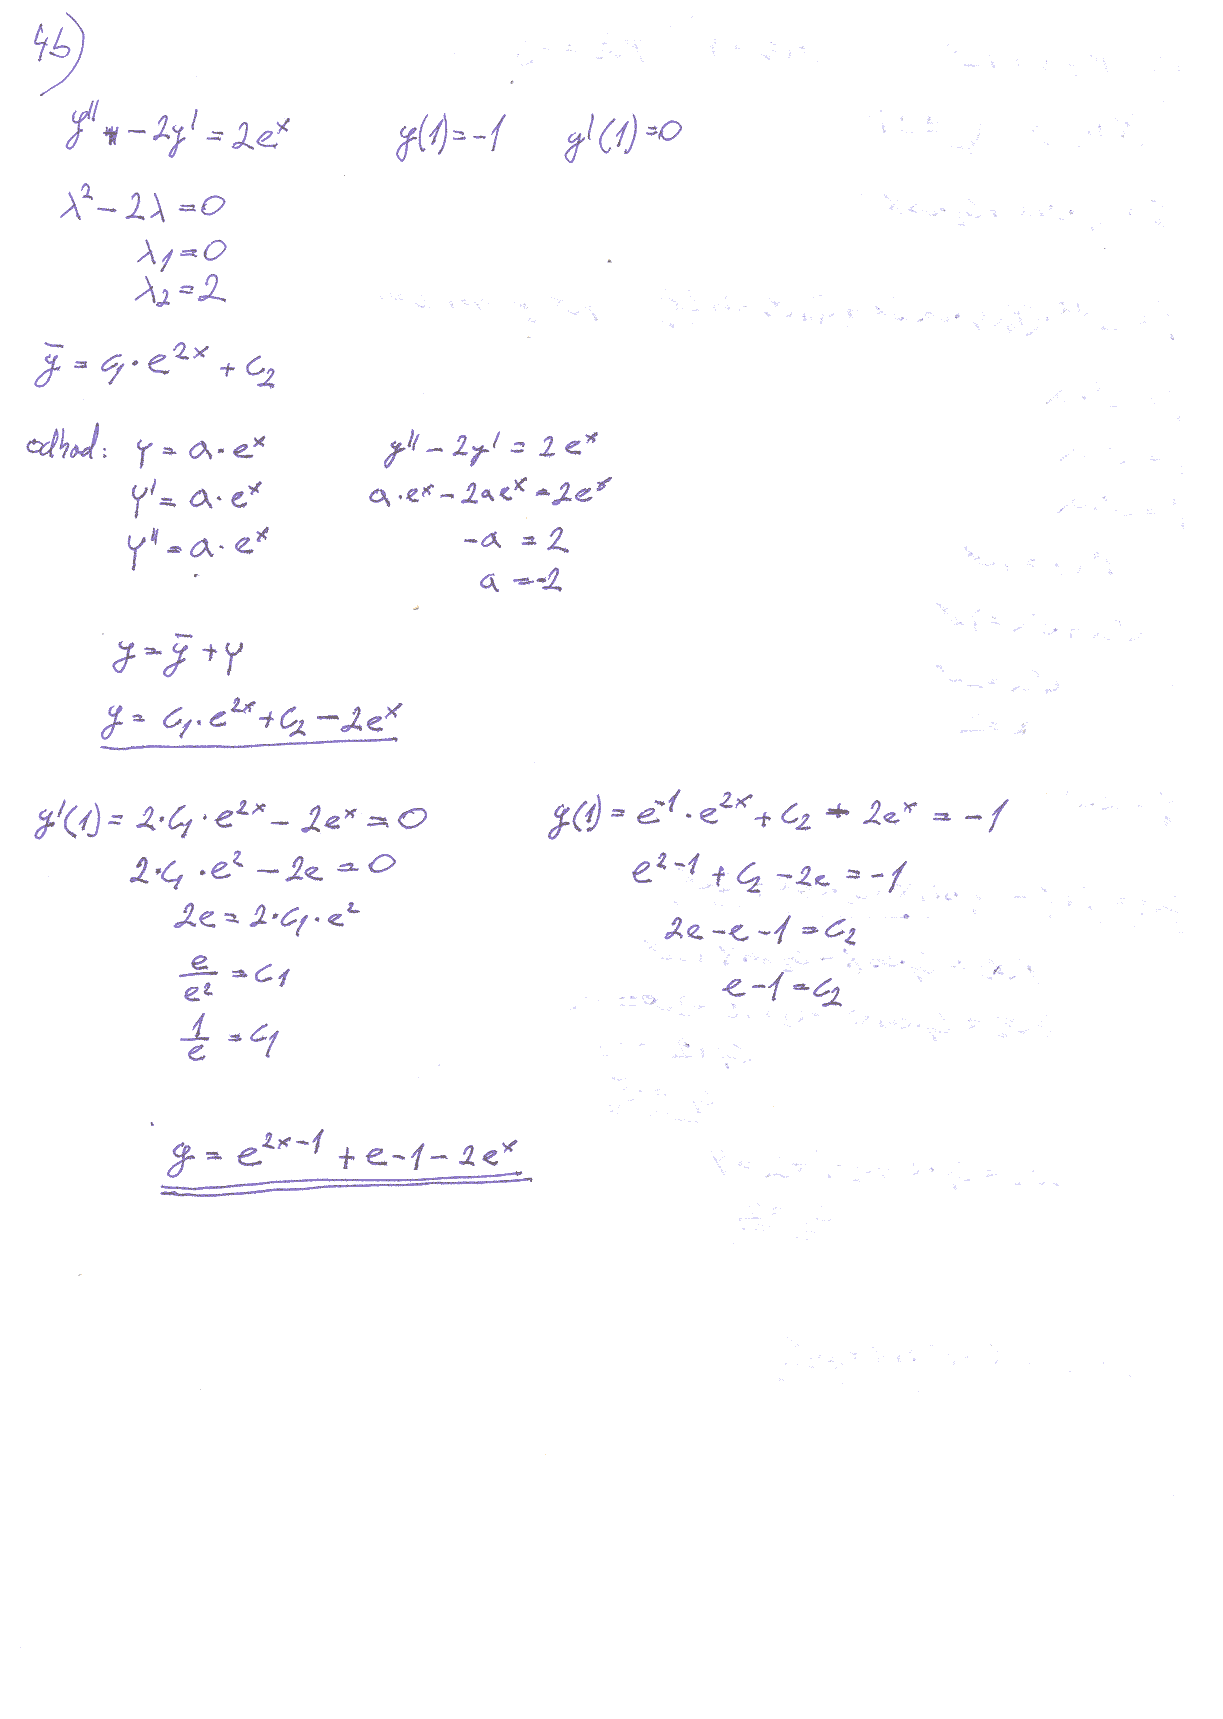 4b)
y'' - 2y' = 2e^x y(1) = -1 y'(1) = 0
λ² - 2λ = 0
λ₁ = 0
λ₂ = 2
ȳ = c₁ · e^{2x} + c₂
odhad: Y = a · e^x y'' - 2y' = 2e^x
Y' = a · e^x a · e^x - 2ae^x = 2e^x
Y'' = a · e^x -a = 2
a = -2
y = ȳ + Y
y = c₁ · e^{2x} + c₂ - 2e^x
y'(1) = 2 · c₁ · e^{2x} - 2e^x = 0 y(1) = e^{-1} · e^{2x} + c₂ - 2e^x = -1
2 · c₁ · e² - 2e = 0 e^{2-1} + c₂ - 2e = -1
2e = 2 · c₁ · e² 2e - e - 1 = c₂
e/e² = c₁ e - 1 = c₂
1/e = c₁
y = e^{2x-1} + e - 1 - 2e^x